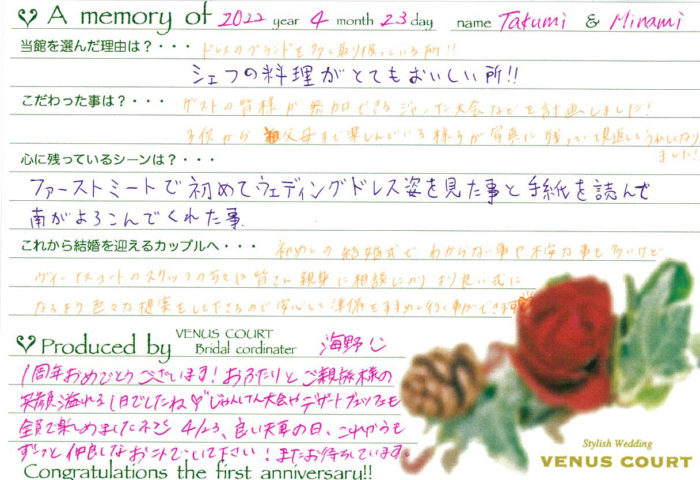 A memory of 2022 year 4 month 23 day name Takumi & Minami
当館を選んだ理由は？・・・ ドレスのブランドを多く取り扱っている所!!
シェフの料理がとてもおいしい所!!
こだわった事は？・・・ ゲストの皆様が参加できるジャンケン大会などを計画しました!
子供から祖父母まで楽しんでいる様子が写真に残っていて見返してうれしくなり
ました!
心に残っているシーンは？・・・
ファーストミートで初めてウェディングドレス姿を見た事と手紙を読んで
南がよろこんでくれた事
これから結婚を迎えるカップルへ・・・ 初めての結婚式でわからない事や不安な事も多いけど
ヴィーナスコートのスタッフの方々に皆さん親身に相談にのりより良い式に
なるよう色々な提案をして下さるので安心して準備をすすめて行く事ができます
Produced by VENUS COURT Bridal cordinater 海野
1周年おめでとうございます! おふたりとご親族様の
笑顔溢れる1日でしたね♡じゃんけん大会やデザートブッフェも
全員で楽しめましたネ 4/23、良い天気の日、これからも
ずーっと仲良しなおふたりでいて下さい! またお待ちしています。
Congratulations the first anniversary!!
Stylish Wedding
VENUS COURT